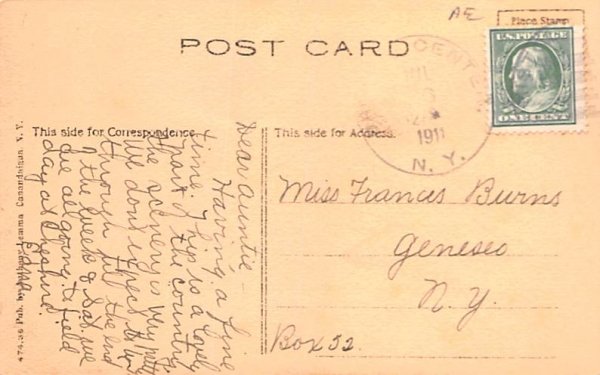 AE
Place Stamp
POST CARD
U.S. POSTAGE
ONE CENT
CENTE
1911
N. Y.
This side for Correspondence.
This side for Address.
Dear Auntie —
Having a fine
time. This is a lovely
part of the country
the scenery is very pretty
We dont expect to
through till the end
of the week & Sat. we
are all going to field
day at Shepherd.
Miss Francis Burns
Geneseo
N. Y.
Box 52.
Canandaigua, N. Y.